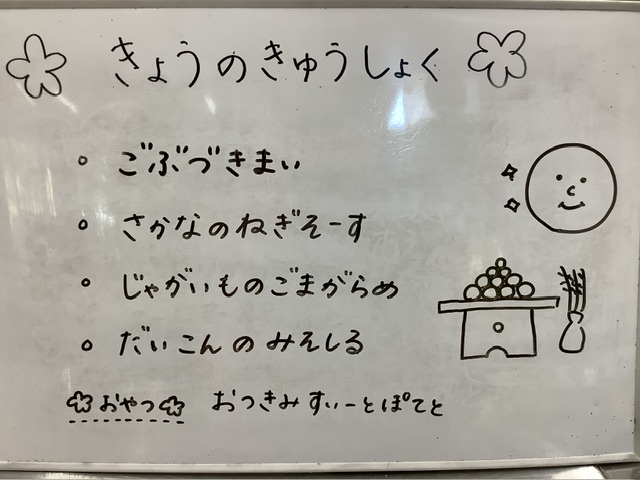 きょうのきゅうしょく
。ごぶづきまい
。さかなのねぎそーす
。じゃがいものごまがらめ
。だいこんのみそしる
おやつ おつきみすいーとぽてと